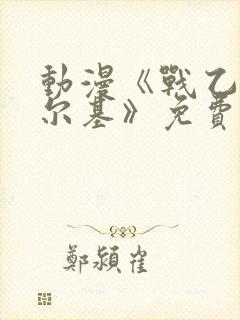 動漫《戰乙
尔基》免費
鄭潁崔